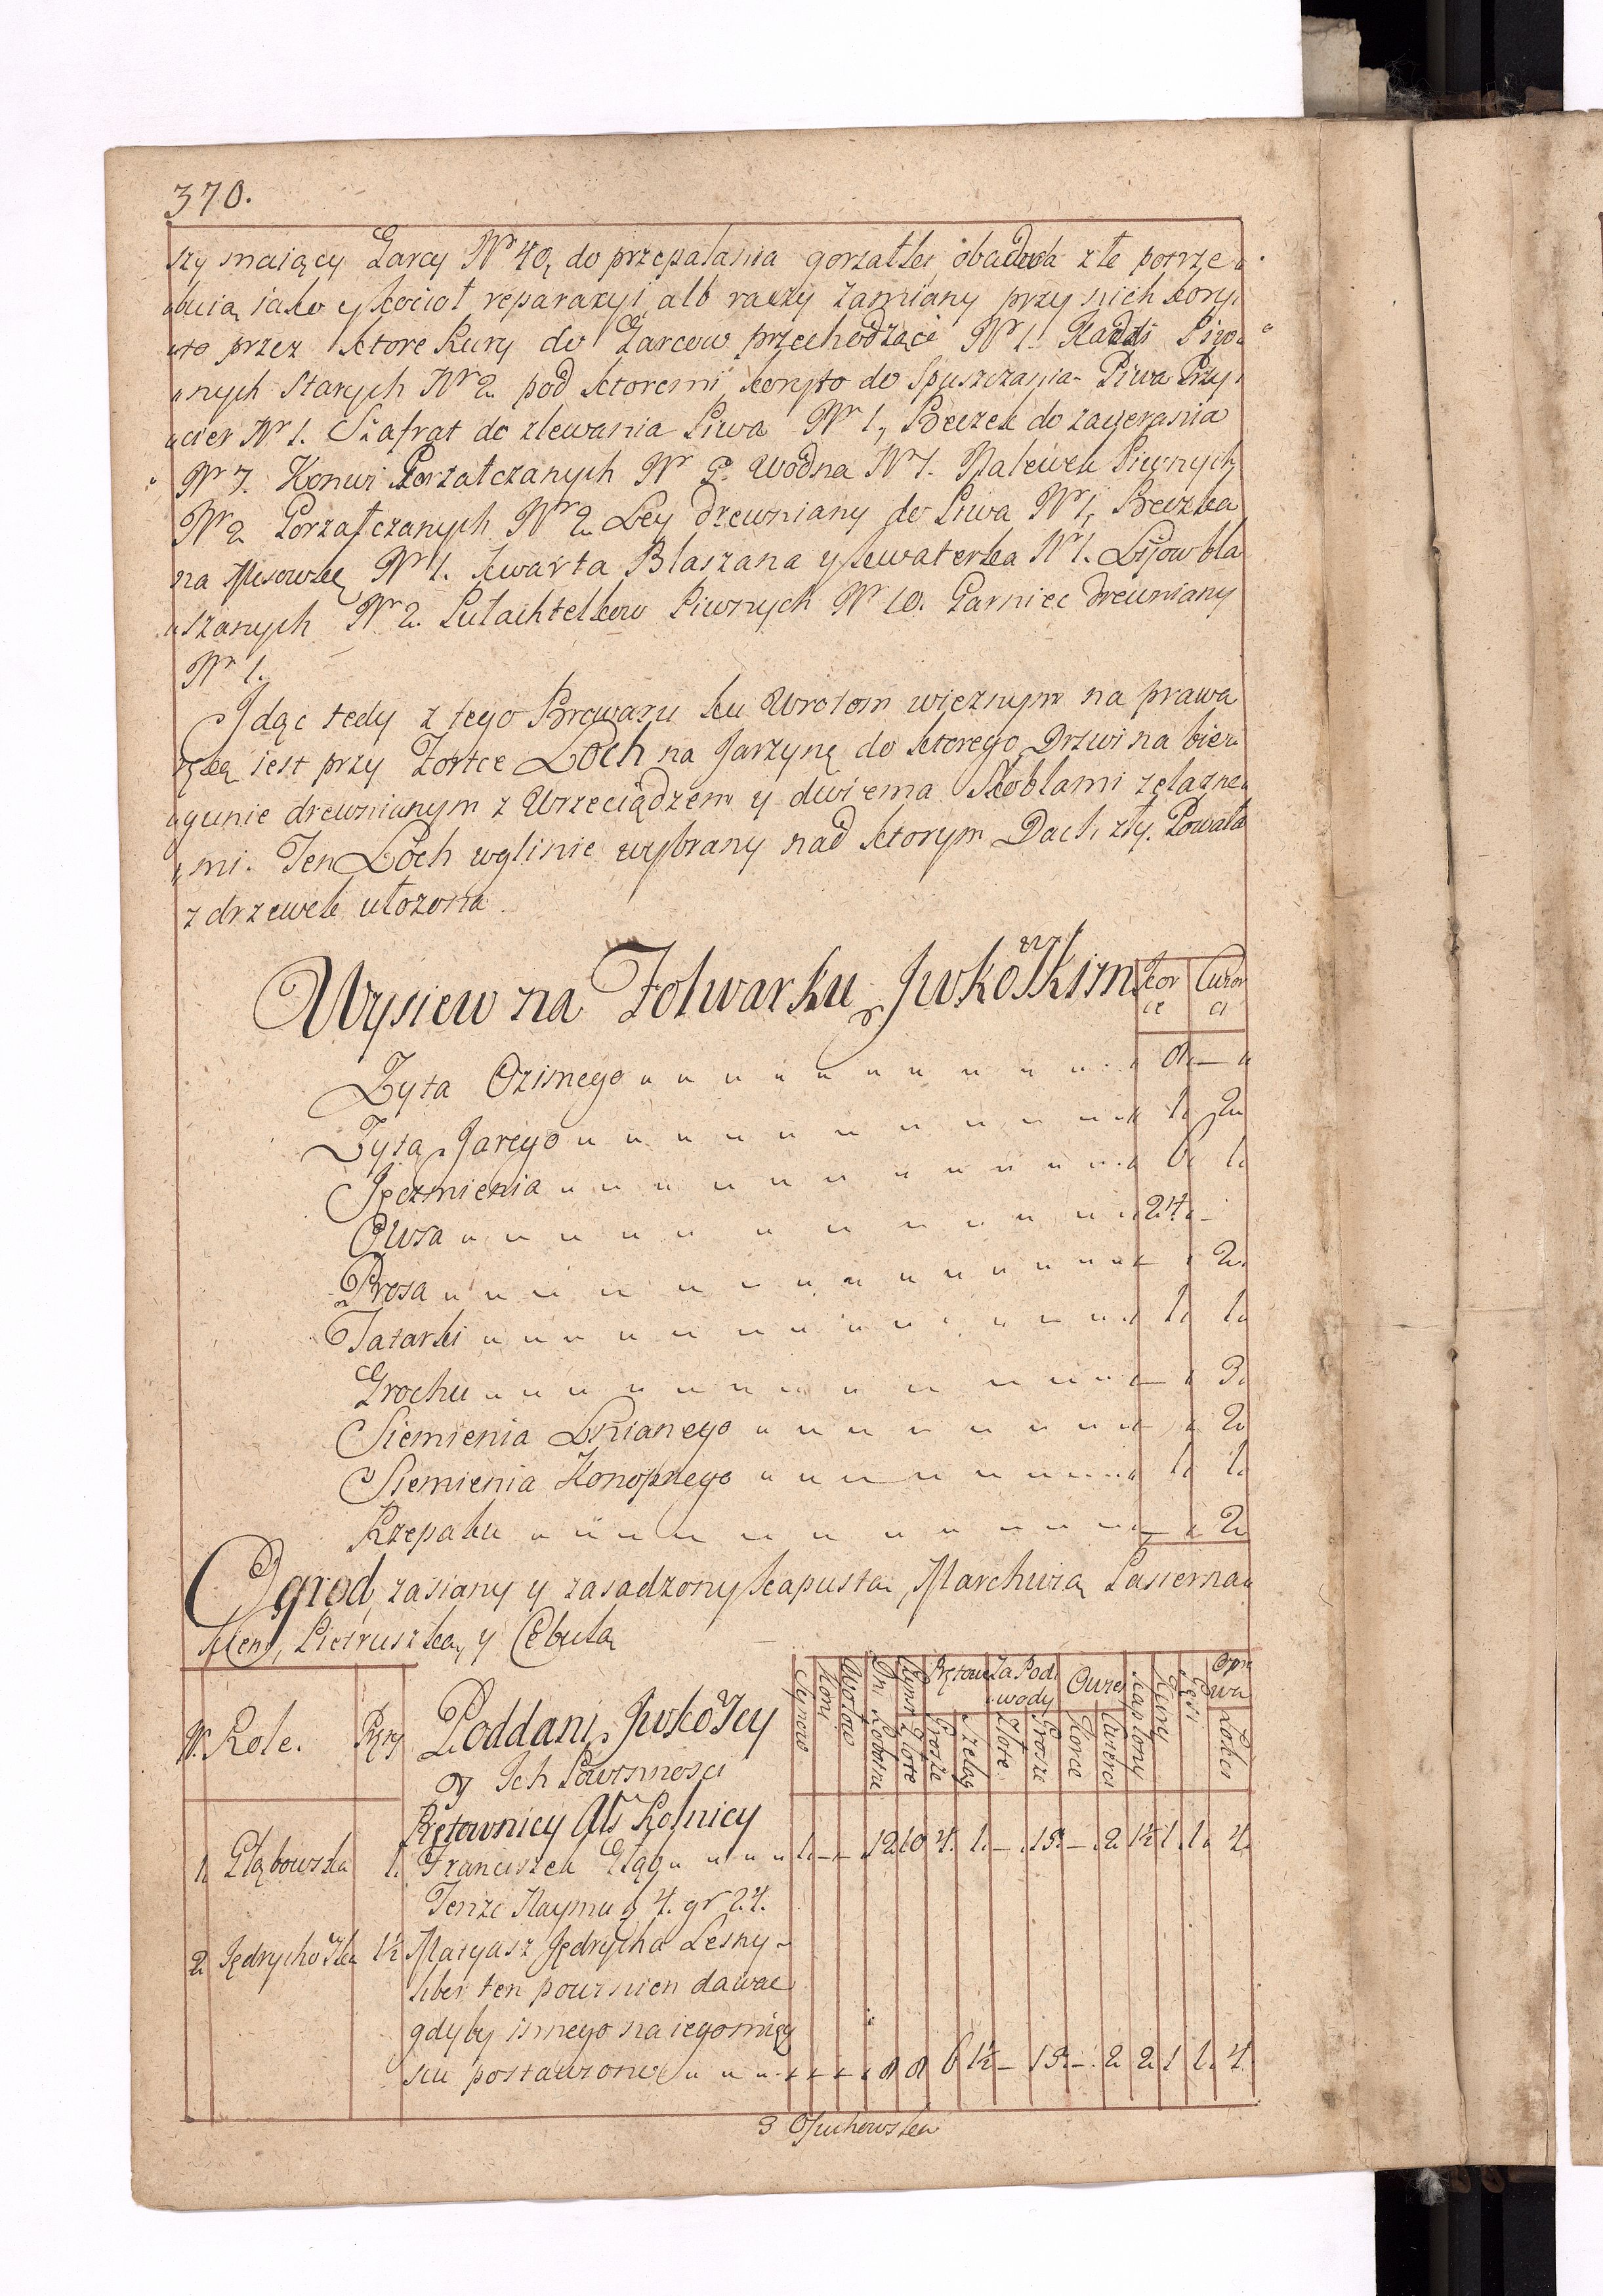 370.
szy maiący Garcy Nr 40, do przepalania gorzałki obadwa złe potrze„
„buią iako y kocioł reparacyi, alb raczy zamiany przy nich kory„
„to przez ktore Rury do Garcow przechodzące Nr 1. Kadzi Piw„
„nych Starych Nr 2. pod ktoremi koryto do Spuszczania Piwa Przy„
„cier Nr 1. Szafrat do zlewania Piwa Nr 1, Beczek do zacierania
Nr 7. Konwi Gorzałczanych Nr 2. Wodna Nr 1. Nalewek Piwnych
Nr 2 Gorzałczanych Nr 2 Ley drewniany do Piwa Nr 1, Beczka
na Nr 1. kwarta Blaszana y kwaterka Nr 1. Lijow bla
„szanych Nr 2. Piwnych Nr 10. Garniec drewniany
Nr 1.
Idąc tedy z tego Browaru ku Wrotom wieznym na prawą
rękę iest przy Fortce Loch na Jarzynę do ktorego Drzwi na bie„
„gunie drewnianym z Wrzeciądzem y dwiema Skoblami żelazne„
„mi. Ten Loch w glinie wybrany nad ktorym Dach zły. Powała
z drzewek ułożona
Wysiew na Folwarku Jwkowskim
Kor
ce
Cwier
ci
Zyta Ozimego 8 —
Zyta Jarego 1. 2
Jęczmienia 6 1.
Owsa 24. —
Prosa — 2.
Tatarki 1. 1.
Grochu — 3.
Siemienia Lnianego — 2
Siemienia Konopnego 1. 1.
Rzepaku — 2
Ogrod, zasiany y zasadzony kapustą, Marchwią Pasterna„
kiem, Pietruszką, y Cebulą
Nr. Role. Pręty Poddani Jwkowscy
y Ich Powinnosci
Synow Koni Wołow Dni Robocze Czynsz Złote Rętowe Grosze Szeląg Za Podwody Złote Grosze Owies Korce Cwierci Kapłony Kury Gęsi Oprawa Łokci
Rętownicy Als Rolnicy
1. Głąbowska 1. Franciszek Głąb 1. — — 12 10 4. 1. — 15. — 2 1½ 1 1. 4.
Tenze Naymu f 4. gr 24.
2 Jędrychowska 1½ Maryasz Jędrycha Lesny
kber ten powinien dawac
gdyby innego na iego miey
scu postawiono 8 8 6 1½ — 15. — 2 2 1 1. 4.
3 Osuchowska